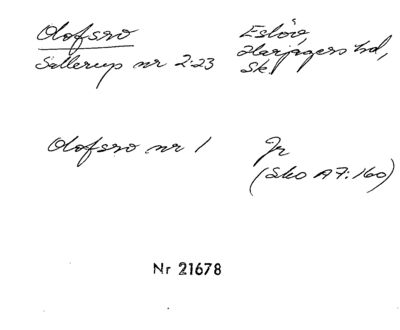 Olofsro Eslöv,
Sallerup nr 2:23 Harjagers hd,
Sk
Olofsro nr 1 Jr
(Sko A7:160)
Nr 21678